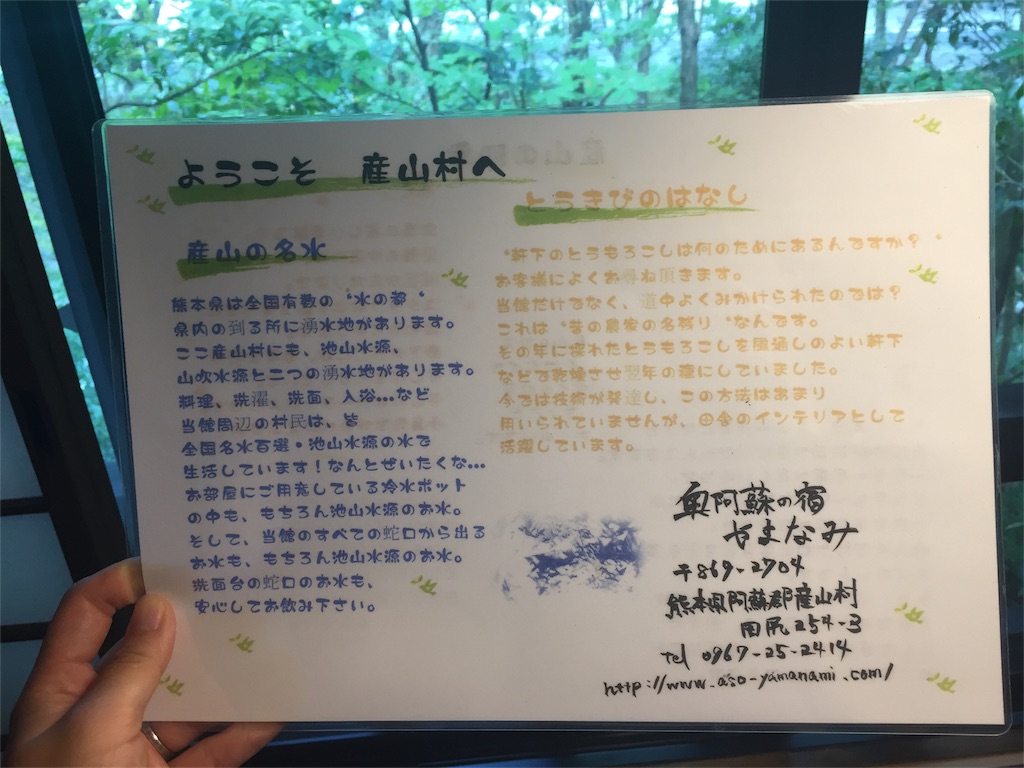 ようこそ 産山村へ
産山の名水
熊本県は全国有数の〝水の都〝
県内の到る所に湧水地があります。
ここ産山村にも、池山水源、
山吹水源と二つの湧水地があります。
料理、洗濯、洗面、入浴…など
当館周辺の村民は、皆
全国名水百選・池山水源の水で
生活しています！なんとぜいたくな…
お部屋にご用意している冷水ポット
の中も、もちろん池山水源のお水。
そして、当館のすべての蛇口から出る
お水も、もちろん池山水源のお水。
洗面台の蛇口のお水も、
安心してお飲み下さい。
とうきびのはなし
〝軒下のとうもろこしは何のためにあるんですか？〝
お客様によくお尋ね頂きます。
当館だけでなく、道中よくみかけられたのでは？
これは〝昔の農家の名残り〝なんです。
その年に採れたとうもろこしを風通しのよい軒下
などで乾燥させ翌年の種にしていました。
今では技術が発達し、この方法はあまり
用いられていませんが、田舎のインテリアとして
活躍しています。
奥阿蘇の宿
やまなみ
〒869-2704
熊本県阿蘇郡産山村
田尻254-3
tel 0967-25-2414
http://www.aso-yamanami.com/